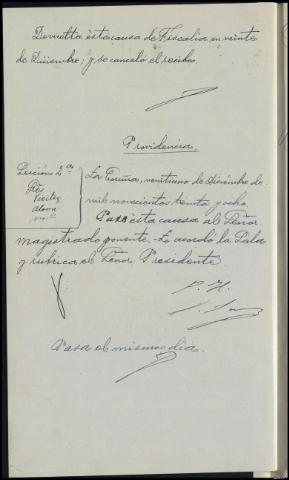 Devuelta esta causa de Fiscalia en veinte
de Diciembre; y se canceló el recibo.
Providencia.
Sección 2ª
La Coruña, veintiuno de Diciembre de
mil novecientos treinta y ocho.
Pase esta causa al Señor
magistrado ponente. Lo acordó la Sala
y rubrica el Señor Presidente
Pasa el mismo dia.